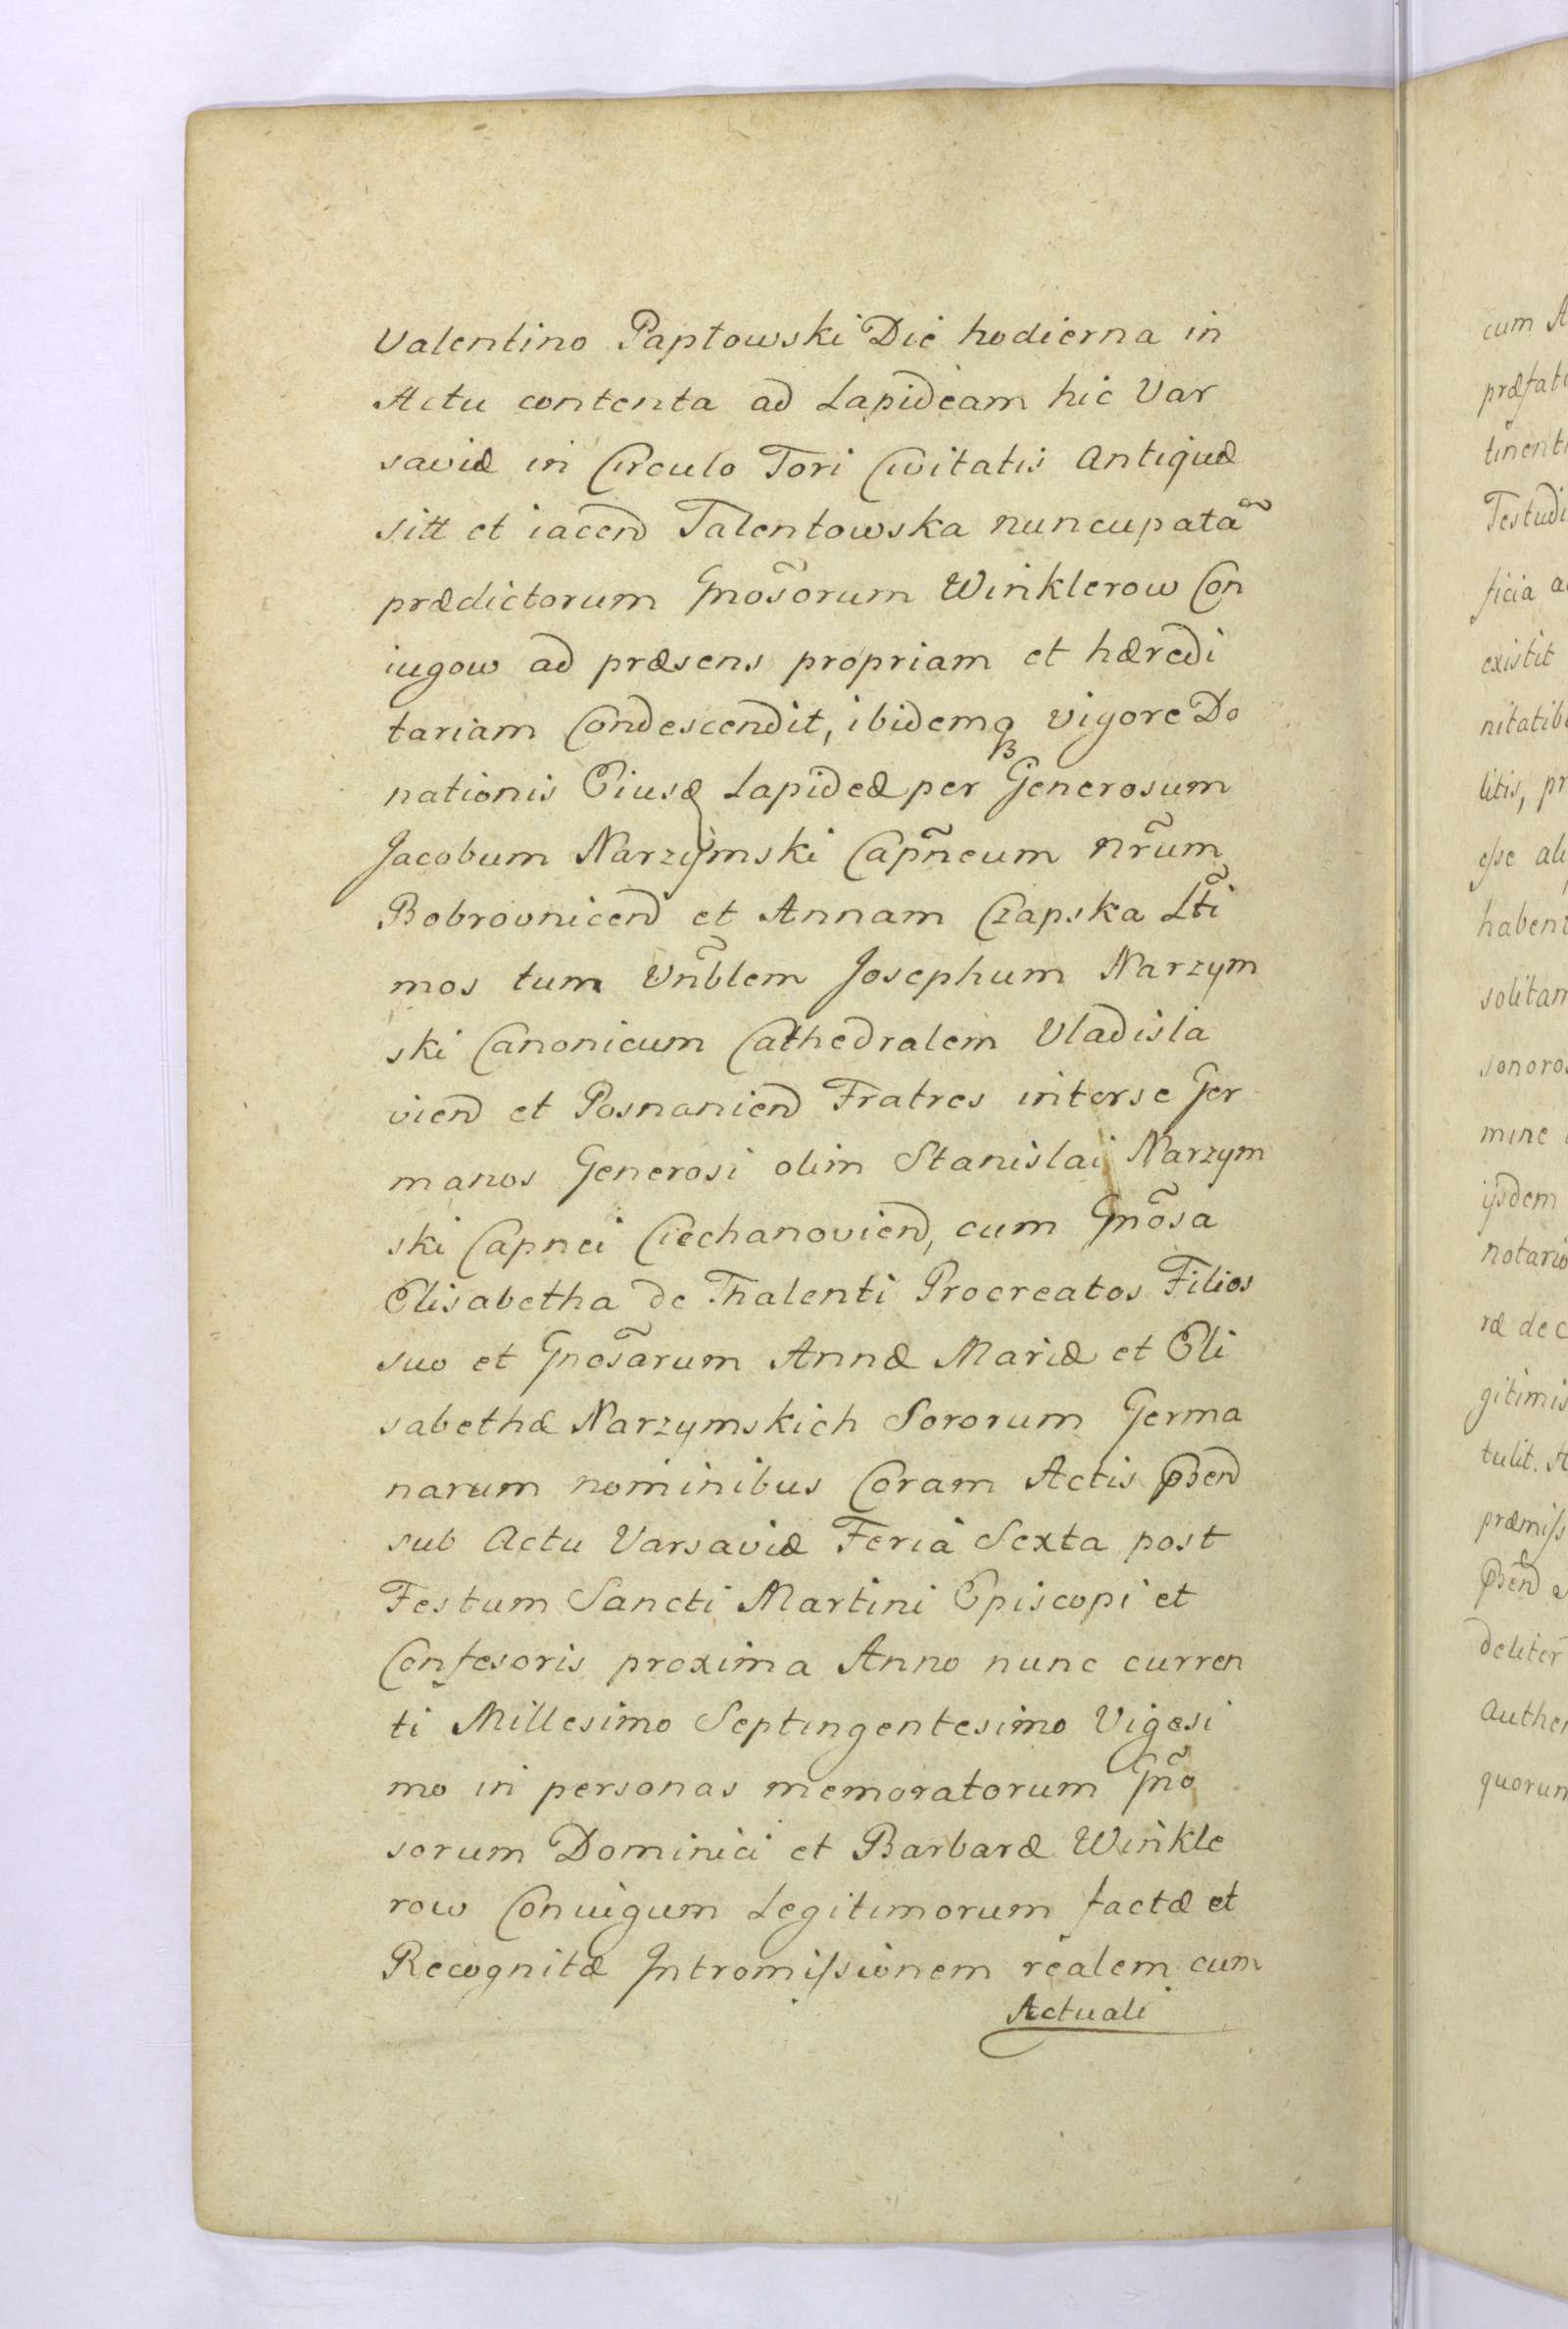 Valentino Paptowski Die hodierna in
Actu contenta ad Lapideam hic Var
saviæ in Circulo Fori Civitatis Antiquæ
sitt et iacend Talentowska nuncupatã
prædictorum Gnosorum Winklerow Con
iugow ad præsens propriam et hæredi
tariam Condescendit, ibidemqꝫ vigore Do
nationis Eiusd Lapideæ per Generosum
Jacobum Narzymski Capñeum nr̃um
Bobrovnicend et Annam Czapska Lt̃i
mos tum Vñblem Josephum Narzym
ski Canonicum Cathedralem Vladisla
viend et Posnaniend Fratres interse Ger
manos Generosi olim Stanislai Narzym
ski Capnei Ciechanoviend, cum Gnõsa
Elisabetha de Thalenti Procreatos Filios
suo et Gnõsarum Annæ Mariæ et Eli
sabethæ Narzymskich Sororum Germa
narum nominibus Coram Actis p̃send
sub Actu Varsaviæ Feria Sexta post
Festum Sancti Martini Episcopi et
Confesoris proxima Anno nunc curren
ti Millesimo Septingentesimo Vigesi
mo in personas memoratorum Gño
sorum Dominici et Barbaræ Winkle
row Coniugum Legitimorum factæ et
Recognitæ Intromissionem realem cum
Actuali
cum A
præfat
tinent
Testudi
ficia a
existit
nitatib
litis, pr
esse ali
haben
solitam
sonoro
mine
ijsdem
notario
ræ de c
gitimis
tulit. A
præmiss
deliter
Authen
quorum